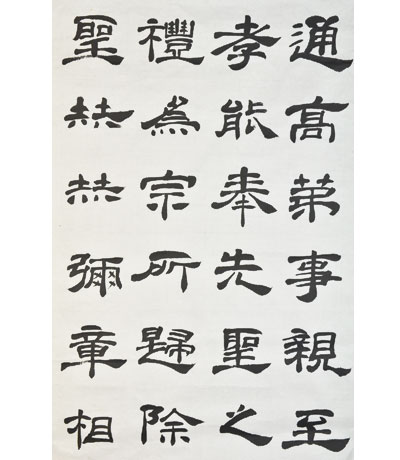 通高第事親至
孝能奉先聖之
禮為宗所歸除
聖赫赫彌章相